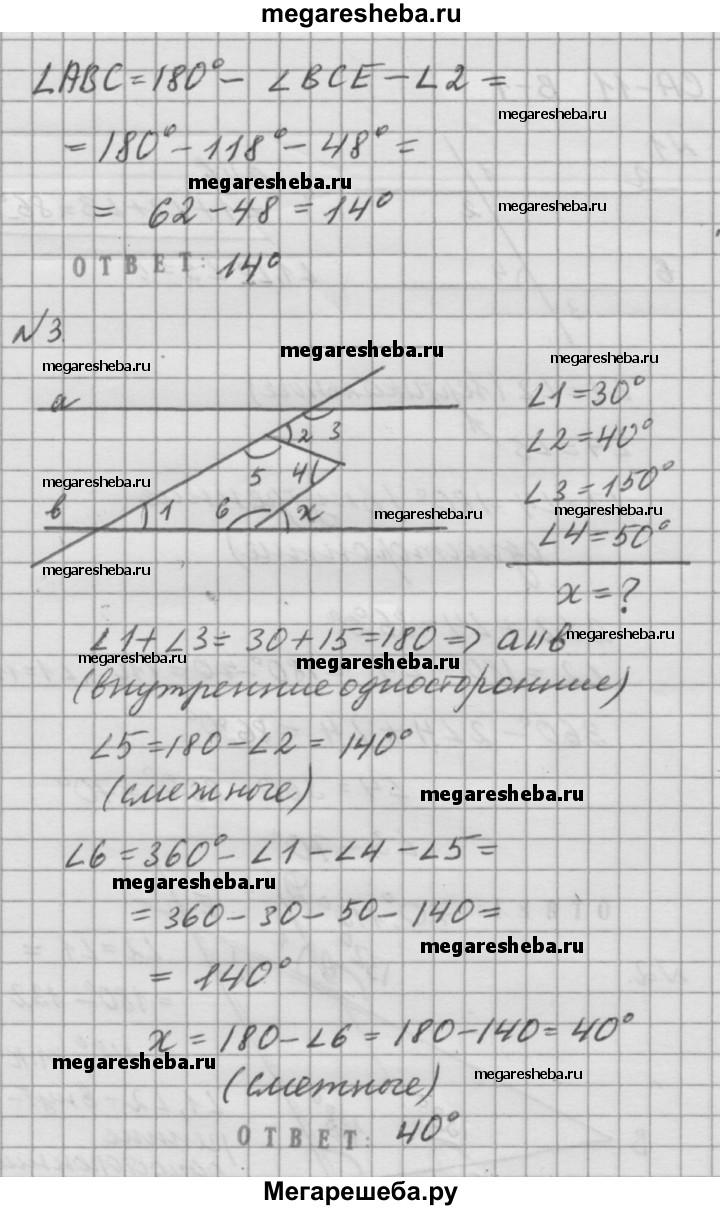 megaresheba.ru
∠ABC = 180° - ∠BCE - ∠2 =
megaresheba.ru
= 180° - 118° - 48° =
megaresheba.ru
megaresheba.ru
= 62 - 48 = 14°
ОТВЕТ: 14°
№3
megaresheba.ru
megaresheba.ru
megaresheba.ru
a
∠1 = 30°
2 3
∠2 = 40°
5 4
megaresheba.ru
∠3 = 150°
в 1 6 x
megaresheba.ru
megaresheba.ru
∠4 = 50°
megaresheba.ru
x = ?
∠1 + ∠3 = 30 + 15 = 180 => a || в
megaresheba.ru
megaresheba.ru
(внутренние односторонние)
∠5 = 180 - ∠2 = 140°
(смежные)
megaresheba.ru
∠6 = 360° - ∠1 - ∠4 - ∠5 =
megaresheba.ru
= 360 - 30 - 50 - 140 =
megaresheba.ru
= 140°
x = 180 - ∠6 = 180 - 140 = 40°
megaresheba.ru
(смежные)
megaresheba.ru
ОТВЕТ: 40°
Мегарешеба.ру